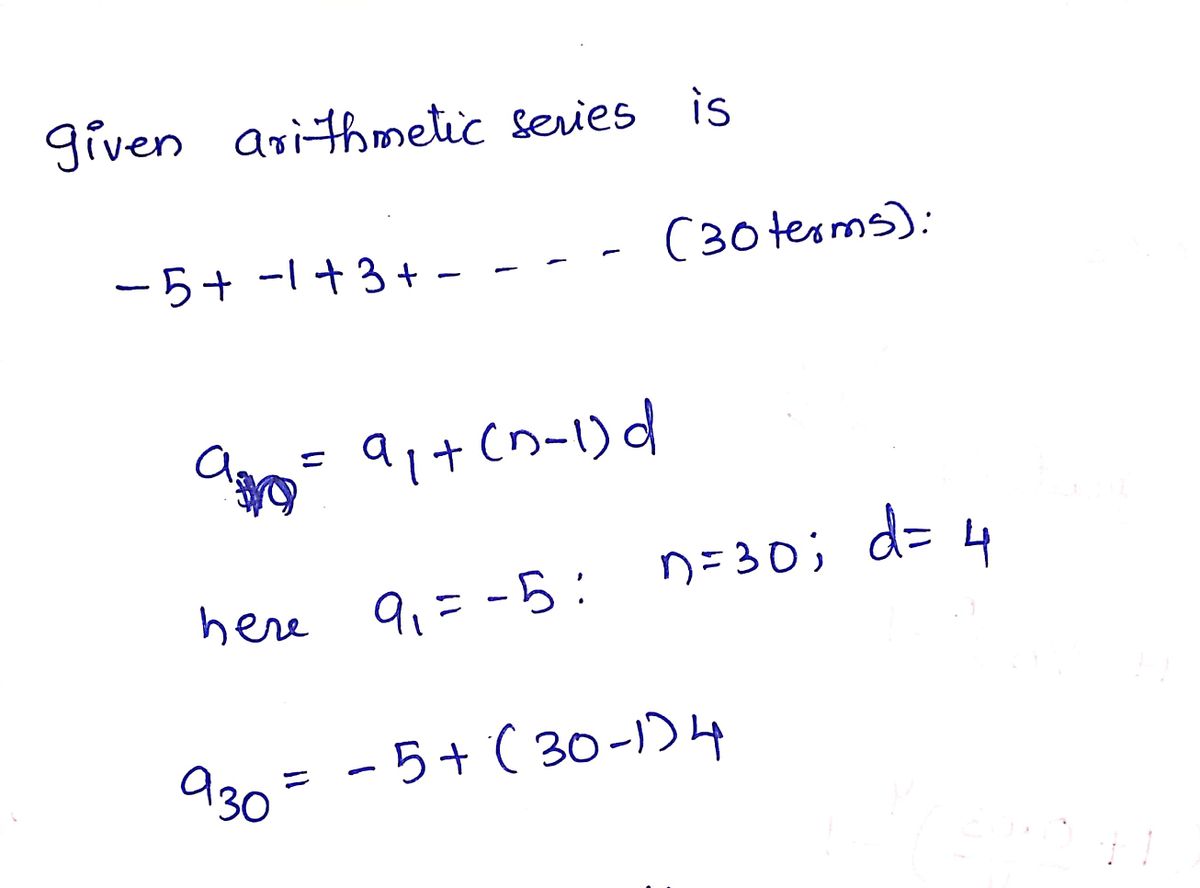 given arithmetic series is
-5+ -1+3+ - - - - (30 terms):
aₙ = a₁+(n-1)d
here a₁=-5: n=30; d=4
a₃₀ = -5+(30-1)4